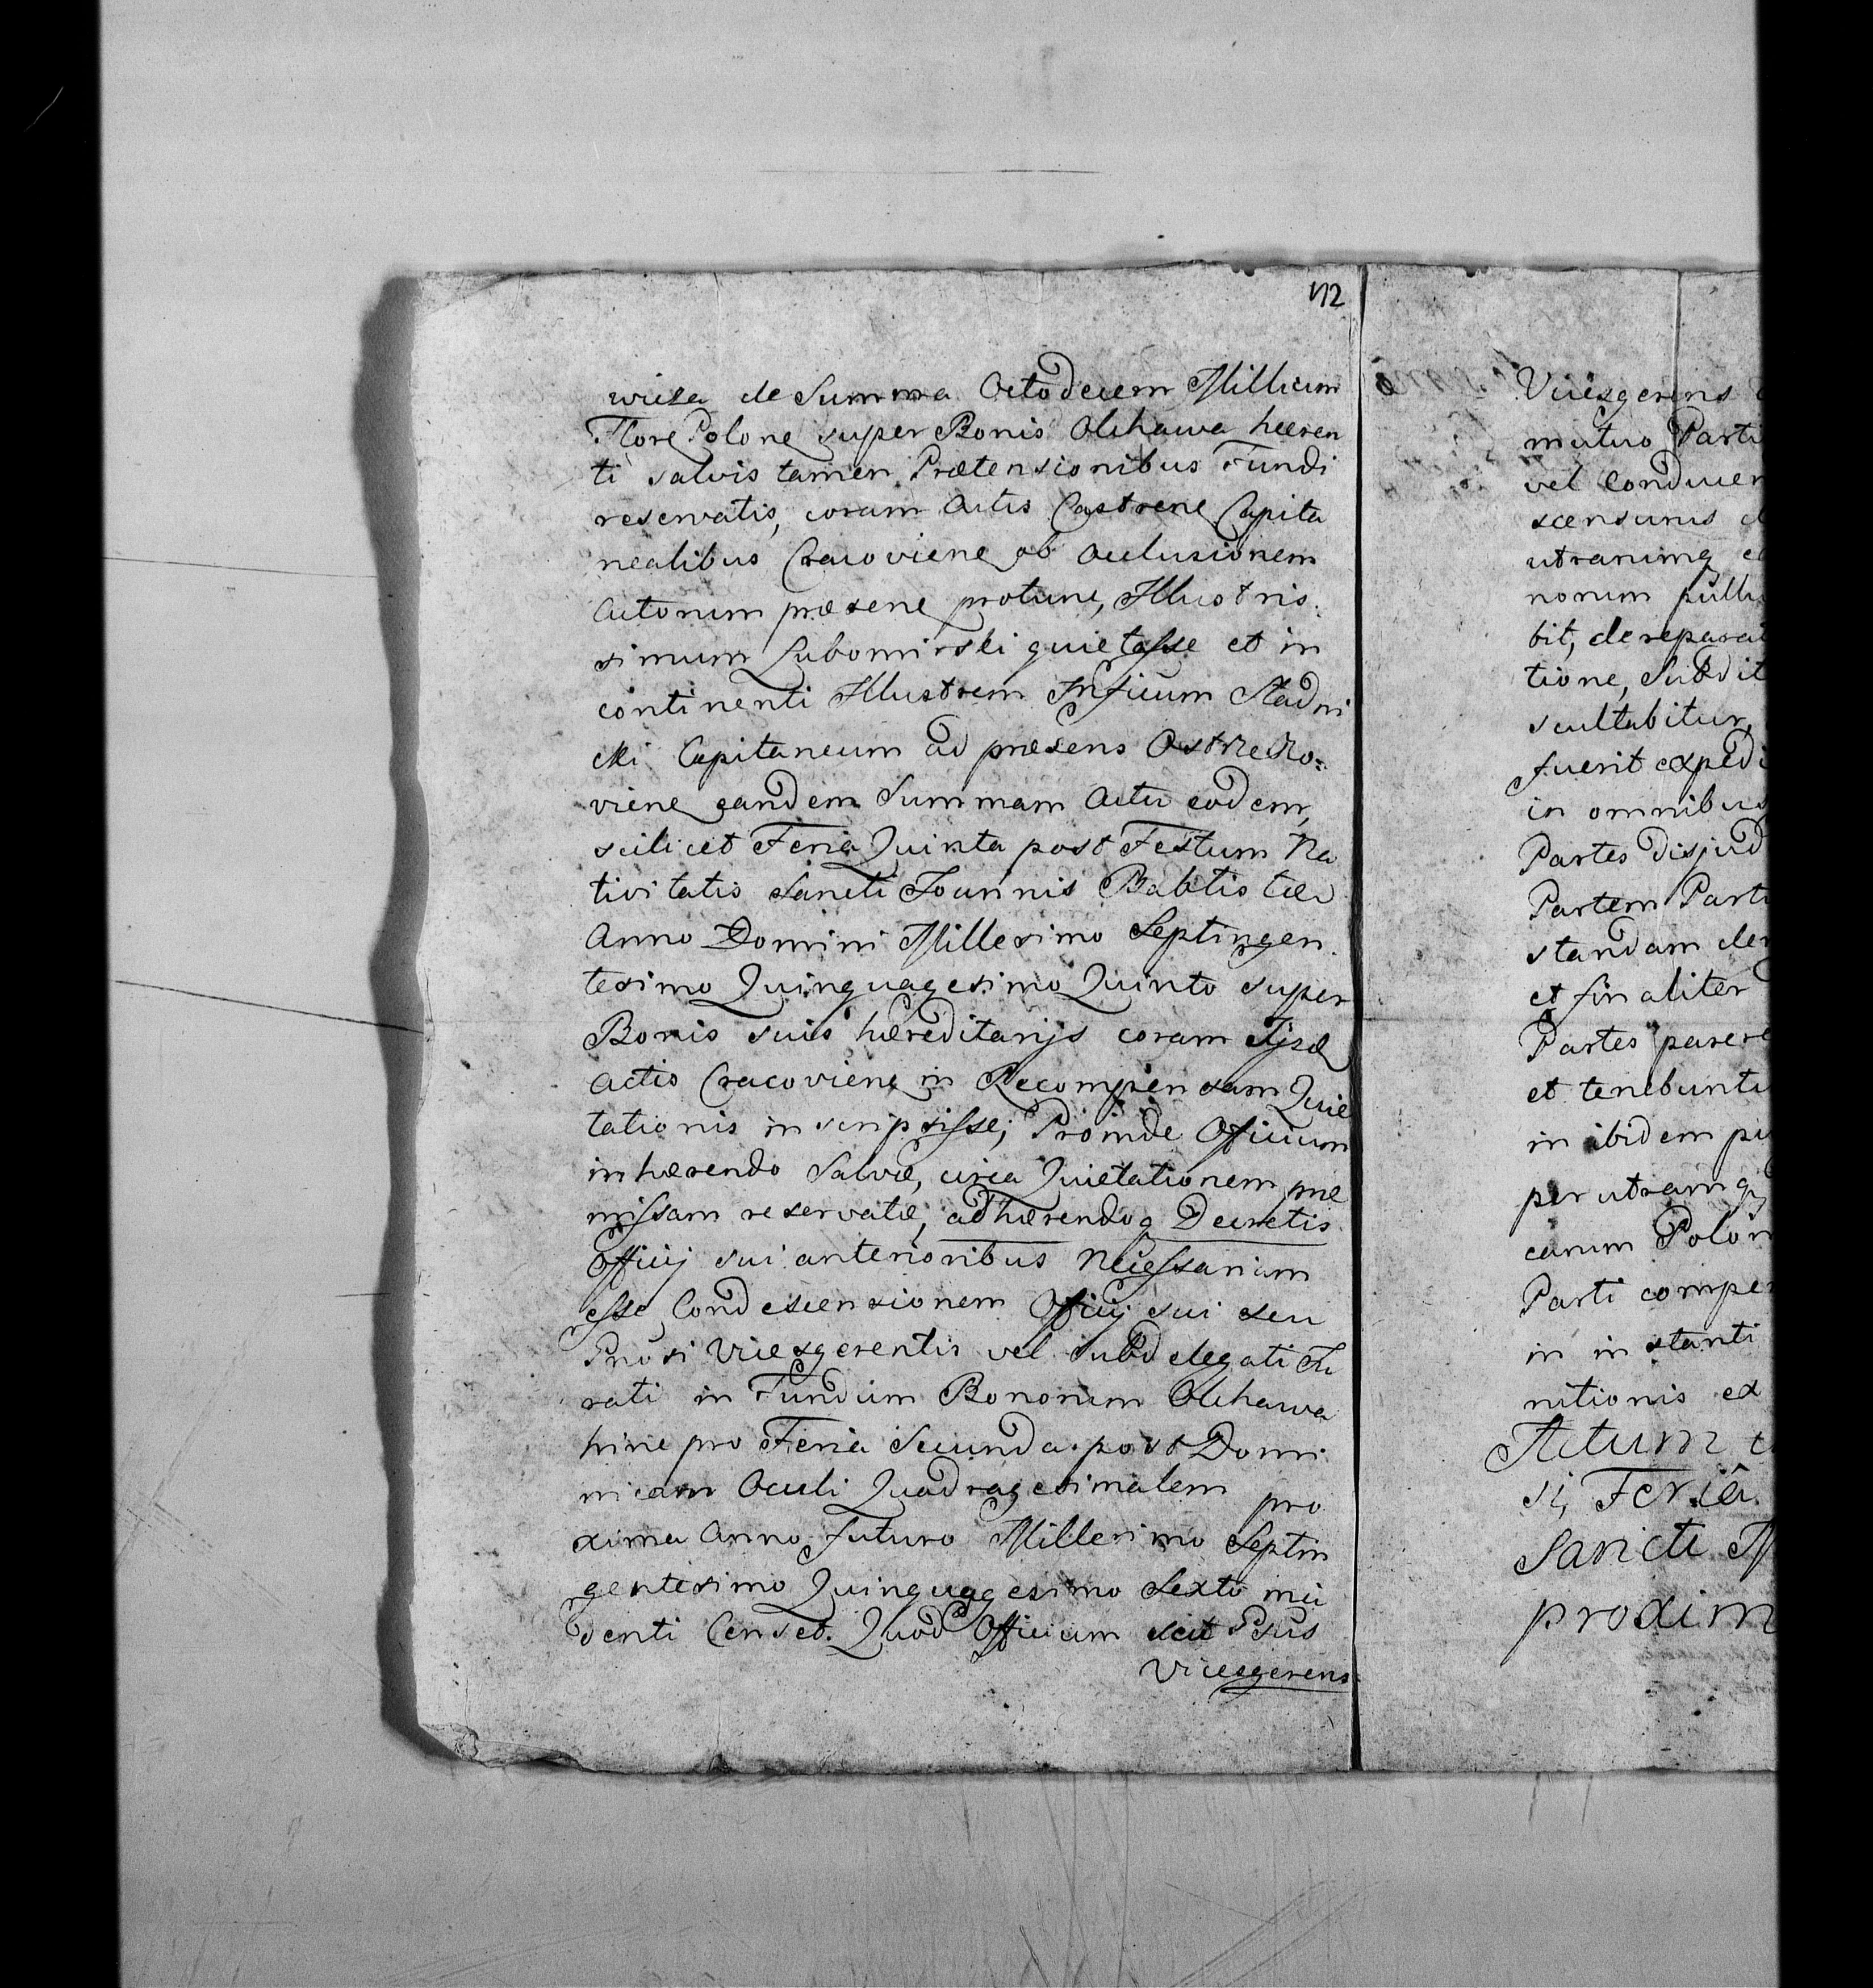 112
wicza de Summa Octodecem Millium
Flore Polone super Bonis Olchawa hæren
ti salvis tamen Prætensionibus Fundi
reservatis, coram Actis Castrene Capita
nealibus Cracoviene ob occlusionem
Actorum præsene protunc, Illustris:
simum Lubomirski quietasse et in
continenti Illustrem Inficum Stadni
cki Capitaneum ad præsens Ostrzeszo=
viene eandem Summam Actu eodem,
scilicet Feria Quinta post Festum Na
tivitatis Sancti Joannis Babtistæ
Anno Domini Millesimo Septingen
tesimo Quinquagesimo Quinto super
Bonis suis hæreditarijs coram Ijsd
Actis Cracoviene in Recompensam Quie
tationis inscripsisse; Proinde Officium
inhærendo Salvæ, circa Quietationem præ
missam reservatæ, adhærendoq Decretis
Officij sui anterioribus Necessariam
esse Condescensionem Officij sui seu
Pnosi Vicesgerentis vel Subdelegati Ju
rati in Fundum Bonorum Olchawa
hinc pro Feria Secunda post Domi
nicam Oculi Quadragesimalem pro
xima Anno futuro Millesimo Septin
gentesimo Quinquagesimo Sexto inci
denti Censet. Quod Officium scit Psus
Vicesgerens
Vicesgerens
mutuo Parti
vel Conducen
scensurus
utramq
norum pullu
bit, de reparat
tione, Subdit
scultabitur,
fuerit expedi
in omnibus
Partes Disjud
Partem Parti
standam
et finaliter
Partes parere
et tenebuntu
in ibidem
per utramq
carum Polon
Parti compe
in instanti
nitionis ex
Actum
si, Feriâ
Sancti M
proxim